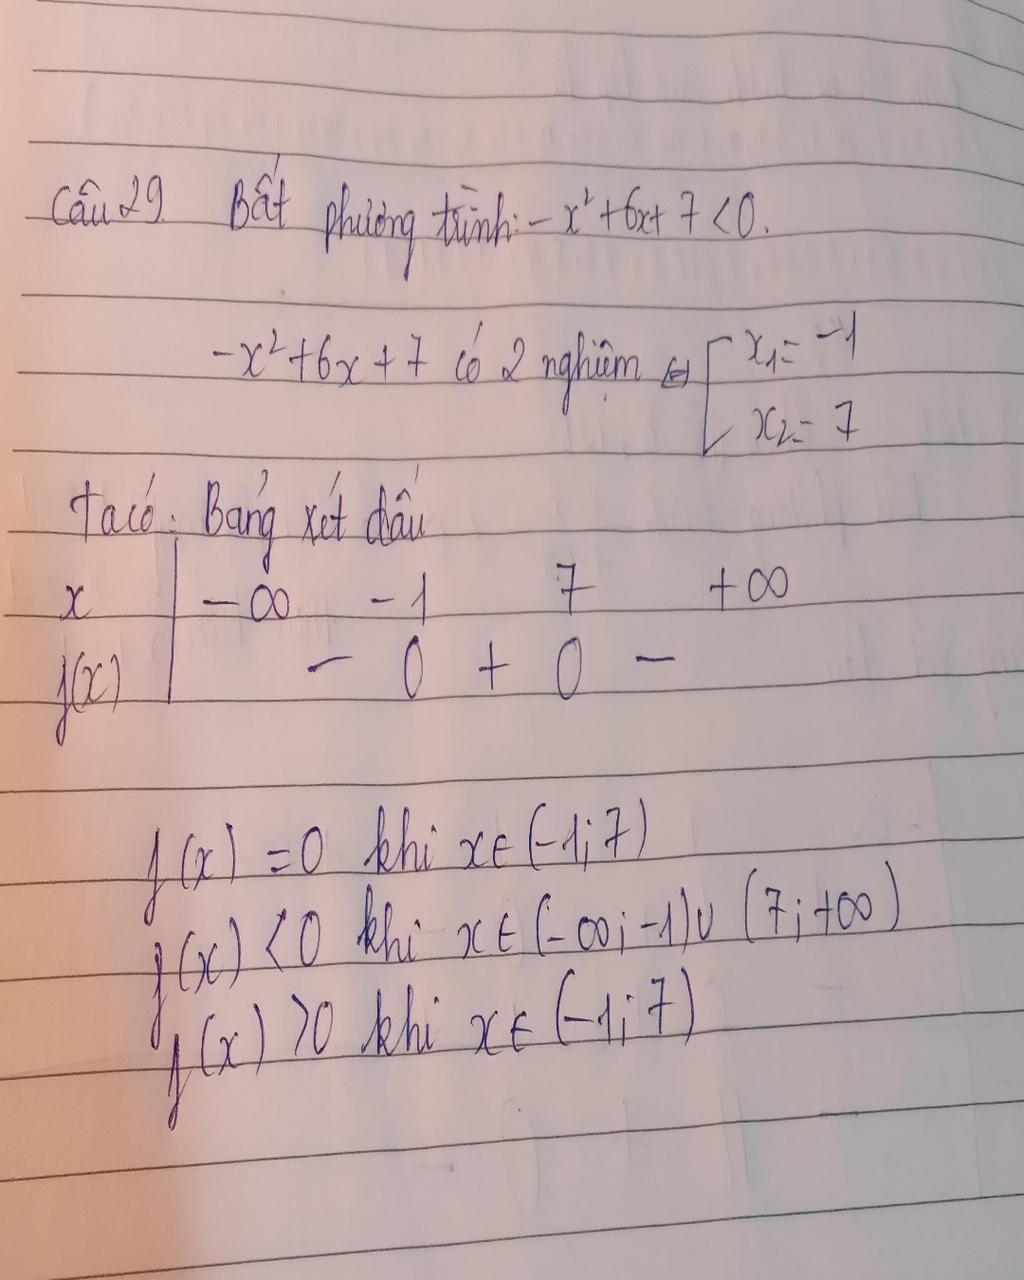 Câu 29 Bất phương trình: -x²+6x+7<0.
-x²+6x+7 có 2 nghiệm ⇔ [ x₁= -1
x₂= 7
Ta có: Bảng xét dấu
x | -∞ -1 7 +∞
f(x) | - 0 + 0 -
f(x) =0 khi x∈(-1;7)
f(x) <0 khi x∈(-∞;-1)∪(7;+∞)
f(x) >0 khi x∈(-1;7)